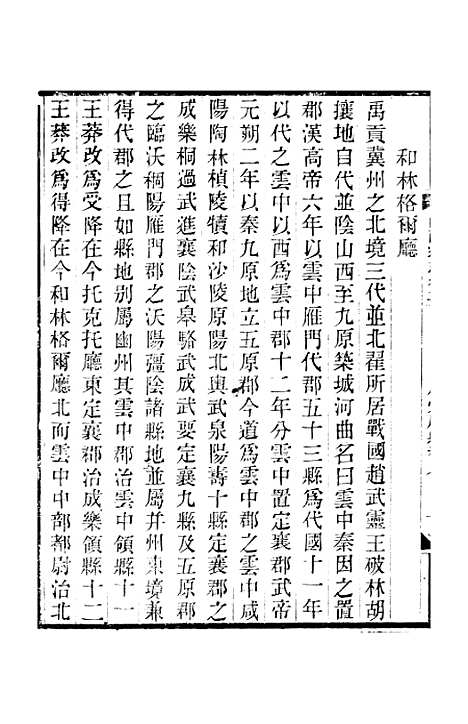 和林格爾廳
禹貢冀州之北境三代並北翟所居戰國趙武靈王破林胡
攘地自代並陰山西至九原築城河曲名曰雲中秦因之置
郡漢高帝六年以雲中雁門代郡五十三縣爲代國十一年
以代之雲中以西爲雲中郡十二年分雲中置定襄郡武帝
元朔二年以秦九原地立五原郡今道爲雲中郡之雲中咸
陽陶林楨陵犢和沙陵原陽北輿武泉陽壽十縣定襄郡之
成樂桐過武進襄陰武皋駱武成武要定襄九縣及五原郡
之臨沃稒陽雁門郡之沃陽彊陰諸縣地並屬并州東境兼
得代郡之且如縣地别屬幽州其雲中郡治雲中領縣十一
王莽改爲受降在今托克托廳東定襄郡治成樂領縣十二
王莽改爲得降在今和林格爾廳北而雲中中部都尉治北